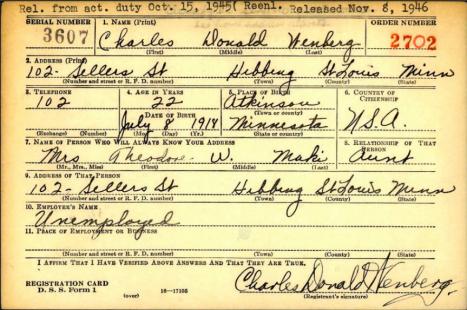 Rel. from act. duty Oct. 15, 1945( Reenl. Released Nov. 8, 1946
SERIAL NUMBER 1. NAME (Print) ORDER NUMBER
3607 Charles Donald Wenberg 2702
(First) (Middle) (Last)
2. ADDRESS (Print)
102- Sellers St Hibbing St Louis Minn
(Number and street or R. F. D. number) (Town) (County) (State)
3. TELEPHONE 4. AGE IN YEARS 5. PLACE OF BIRTH 6. COUNTRY OF CITIZENSHIP
102 22 Atkinson
(Town or county)
DATE OF BIRTH
July 8 1918 Minnesota U.S.A.
(Exchange) (Number) (Mo.) (Day) (Yr.) (State or country)
7. NAME OF PERSON WHO WILL ALWAYS KNOW YOUR ADDRESS 8. RELATIONSHIP OF THAT PERSON
Mrs Theodore W. Maki Aunt
(Mr., Mrs., Miss) (First) (Middle) (Last)
9. ADDRESS OF THAT PERSON
102- Sellers St Hibbing St Louis Minn
(Number and street or R. F. D. number) (Town) (County) (State)
10. EMPLOYER'S NAME
Unemployed
11. PLACE OF EMPLOYMENT OR BUSINESS
(Number and street or R. F. D. number) (Town) (County) (State)
I AFFIRM THAT I HAVE VERIFIED ABOVE ANSWERS AND THAT THEY ARE TRUE.
REGISTRATION CARD Charles Donald Wenberg.
D. S. S. Form 1 (over) 16—17105 (Registrant's signature)